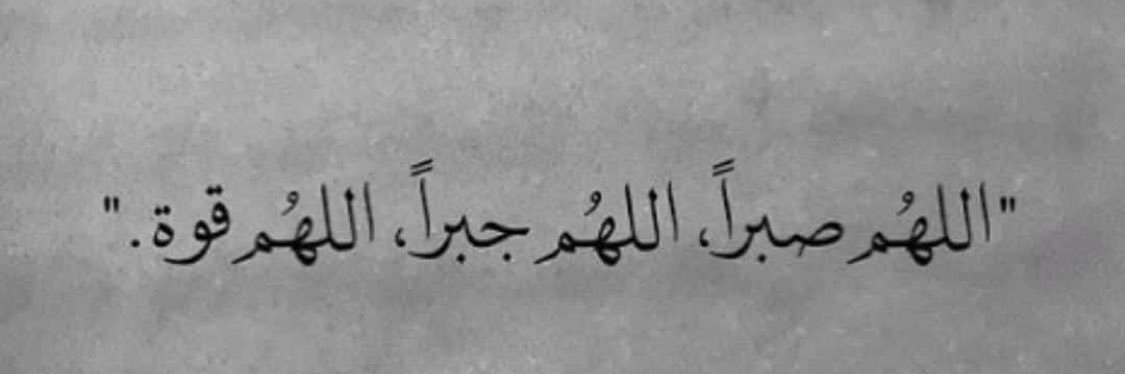 "اللهُم صبراً، اللهُم جبراً، اللهُم قوة."